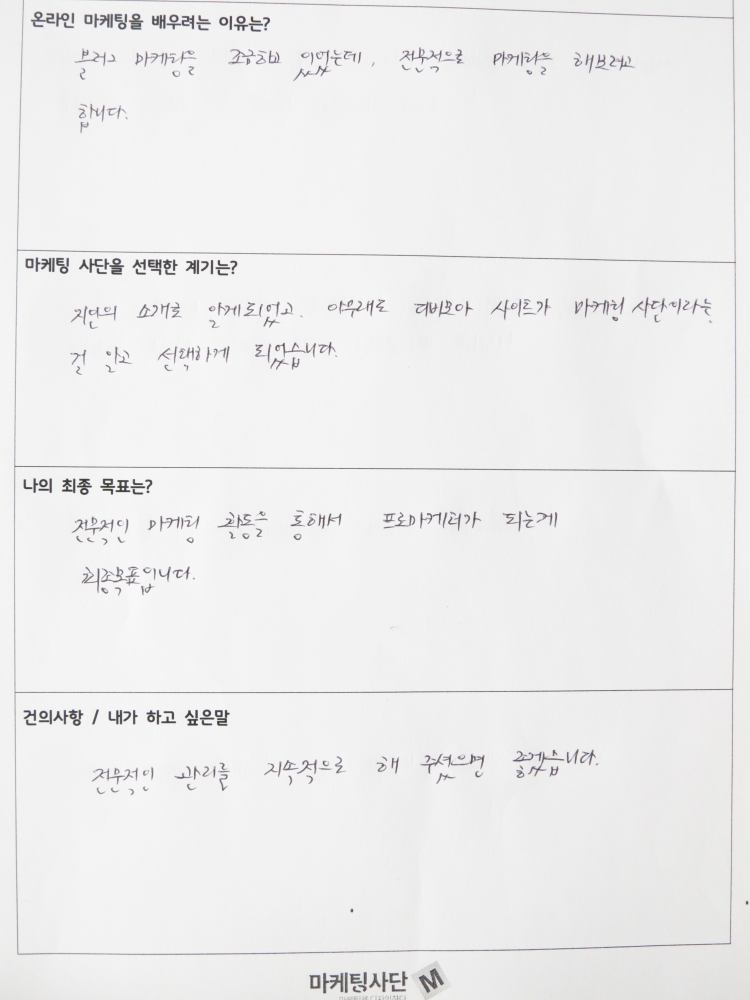 온라인 마케팅을 배우려는 이유는?
블러그 마케팅을 조금하고 있었는데, 전문적으로 마케팅을 해보려고
합니다.
마케팅 사단을 선택한 계기는?
지인의 소개로 알게되었고. 아무래도 디비모아 사이트가 마케팅 사단이라는
걸 알고 선택하게 되었습니다.
나의 최종 목표는?
전문적인 마케팅 활동을 통해서 프로마케터가 되는게
최종목표입니다.
건의사항 / 내가 하고 싶은말
전문적인 관리를 지속적으로 해 주셨으면 좋겠습니다.
마케팅사단 M